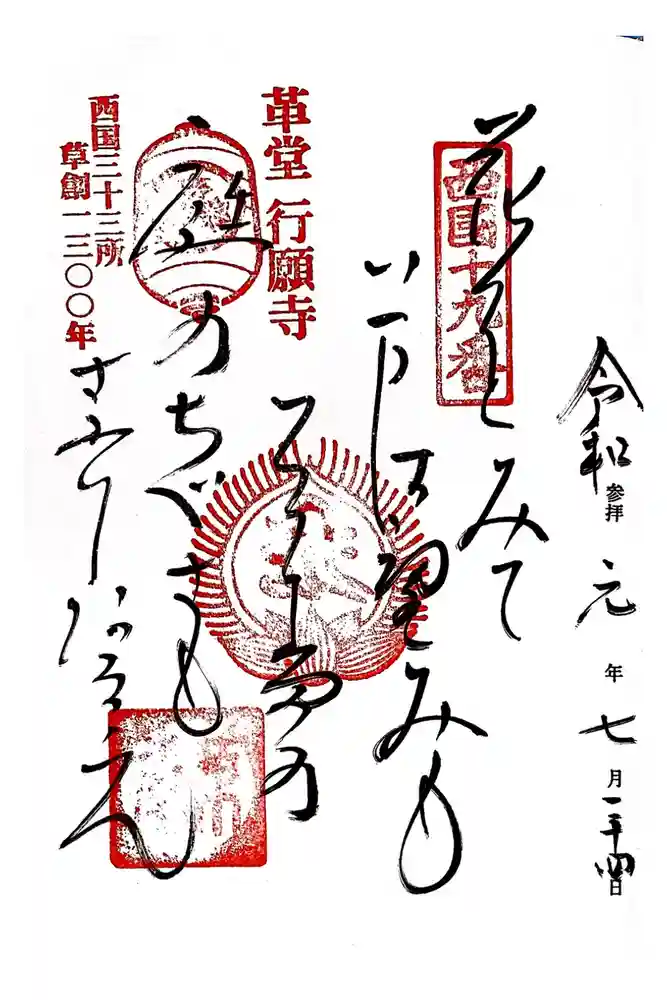 令和参拝元年七月二十四日
西国十九番
花をみて
いまは望みも
庭のちぐさも
さかりなるらん
革堂 行願寺
西国三十三所
草創一三〇〇年